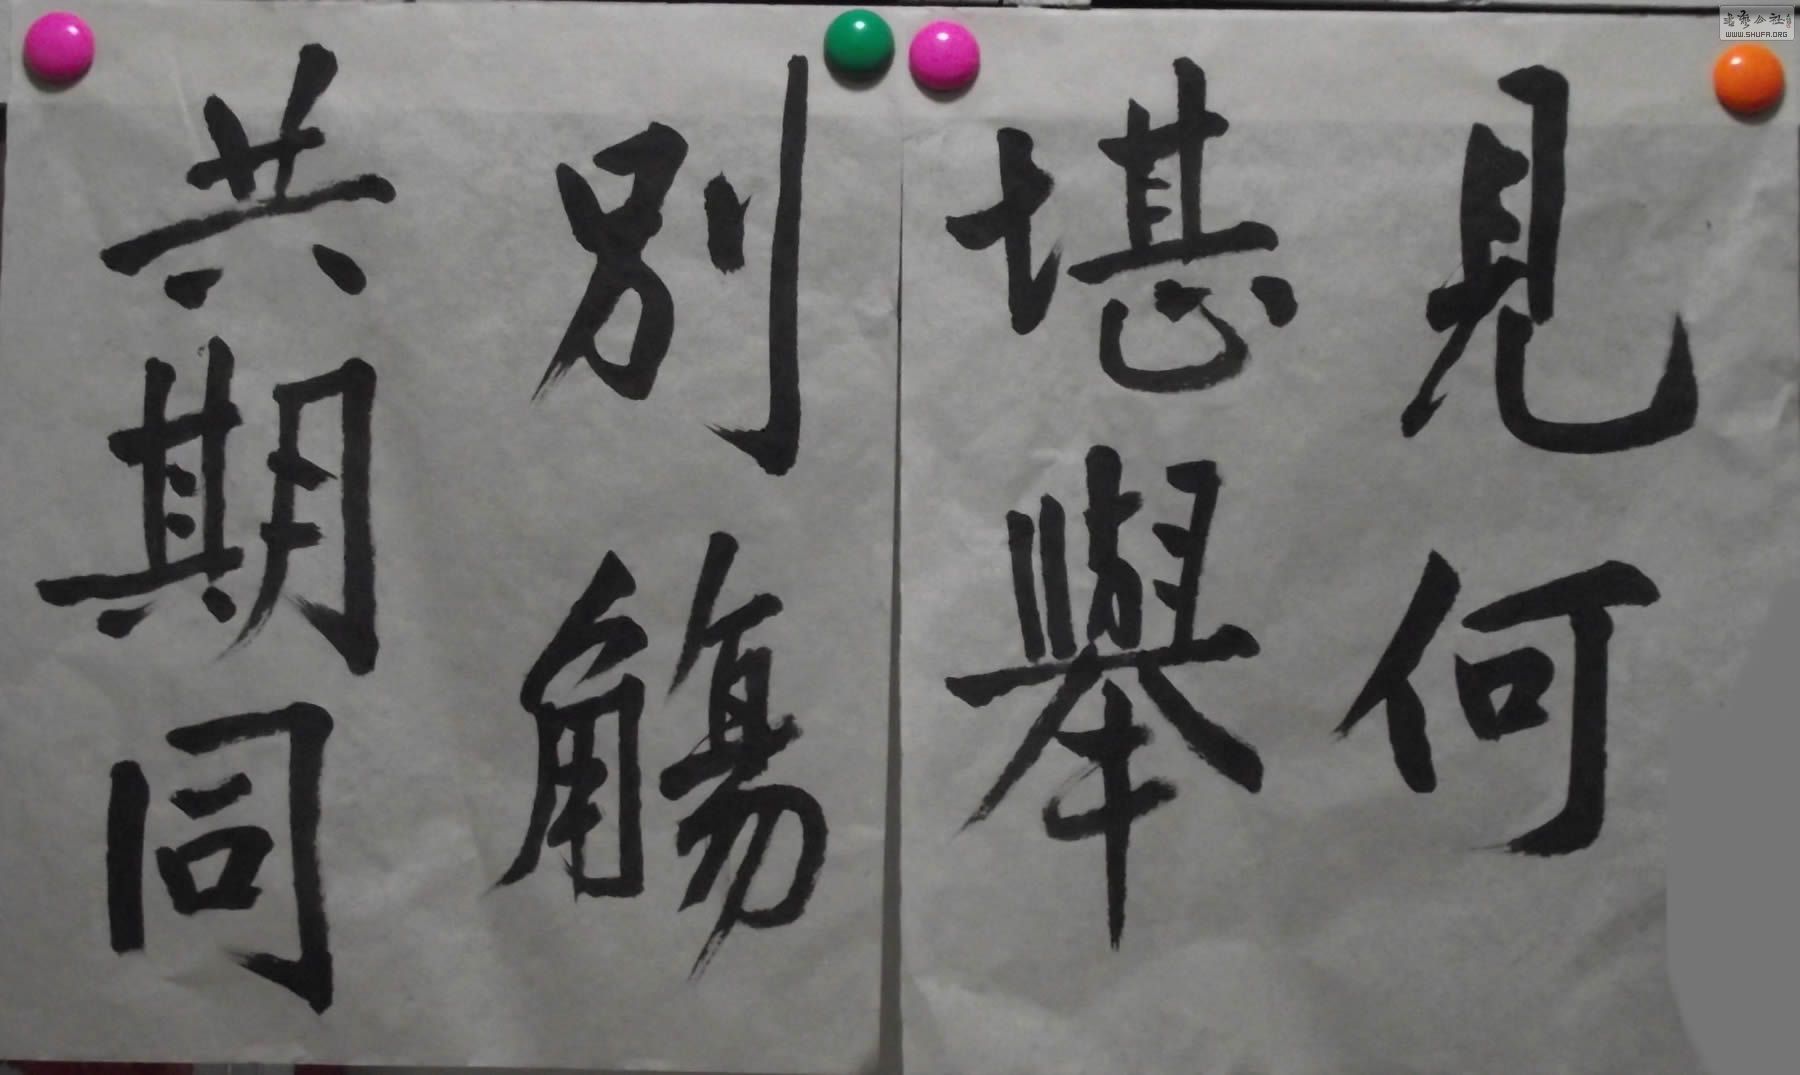 見何
堪舉
別觴
共期同
書藝公社
WWW.SHUFA.ORG